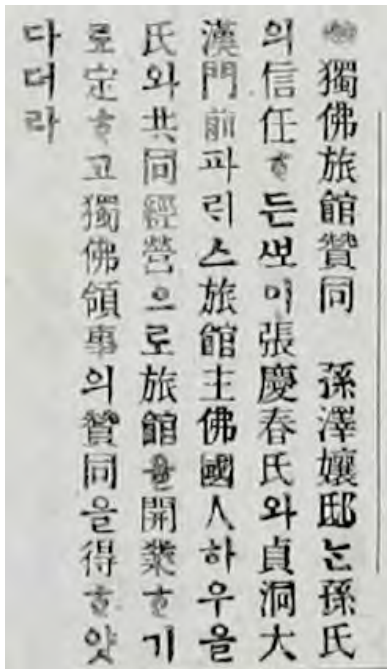 ◉獨佛旅館贊同 孫澤孃邸눈孫氏
의信任ᄒᆞ든ᄲᅩ이張慶春氏와貞洞大
漢門前파리스旅館主佛國人하우을
氏와共同經營으로旅館을開業ᄒᆞ기
로定ᄒᆞ고獨佛領事의贊同을得ᄒᆞ얏
다더라